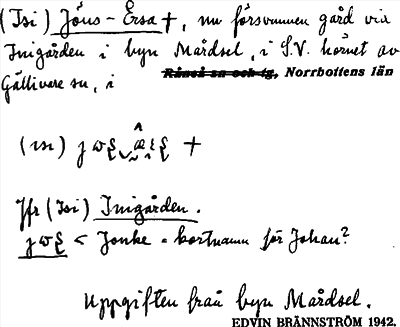 (Isi) Jöns-Ersa †, nu försvunnen gård vid
Inigården i byn Mårdsel, i S.V. hörnet av
Gällivare sn, i Råneå sn och tg, Norrbottens län
(ısı)
Jfr (Isi) Inigården.
< Jonke = kortnamn för Johan?
Uppgiften från byn Mårdsel.
EDVIN BRÄNNSTRÖM 1942.